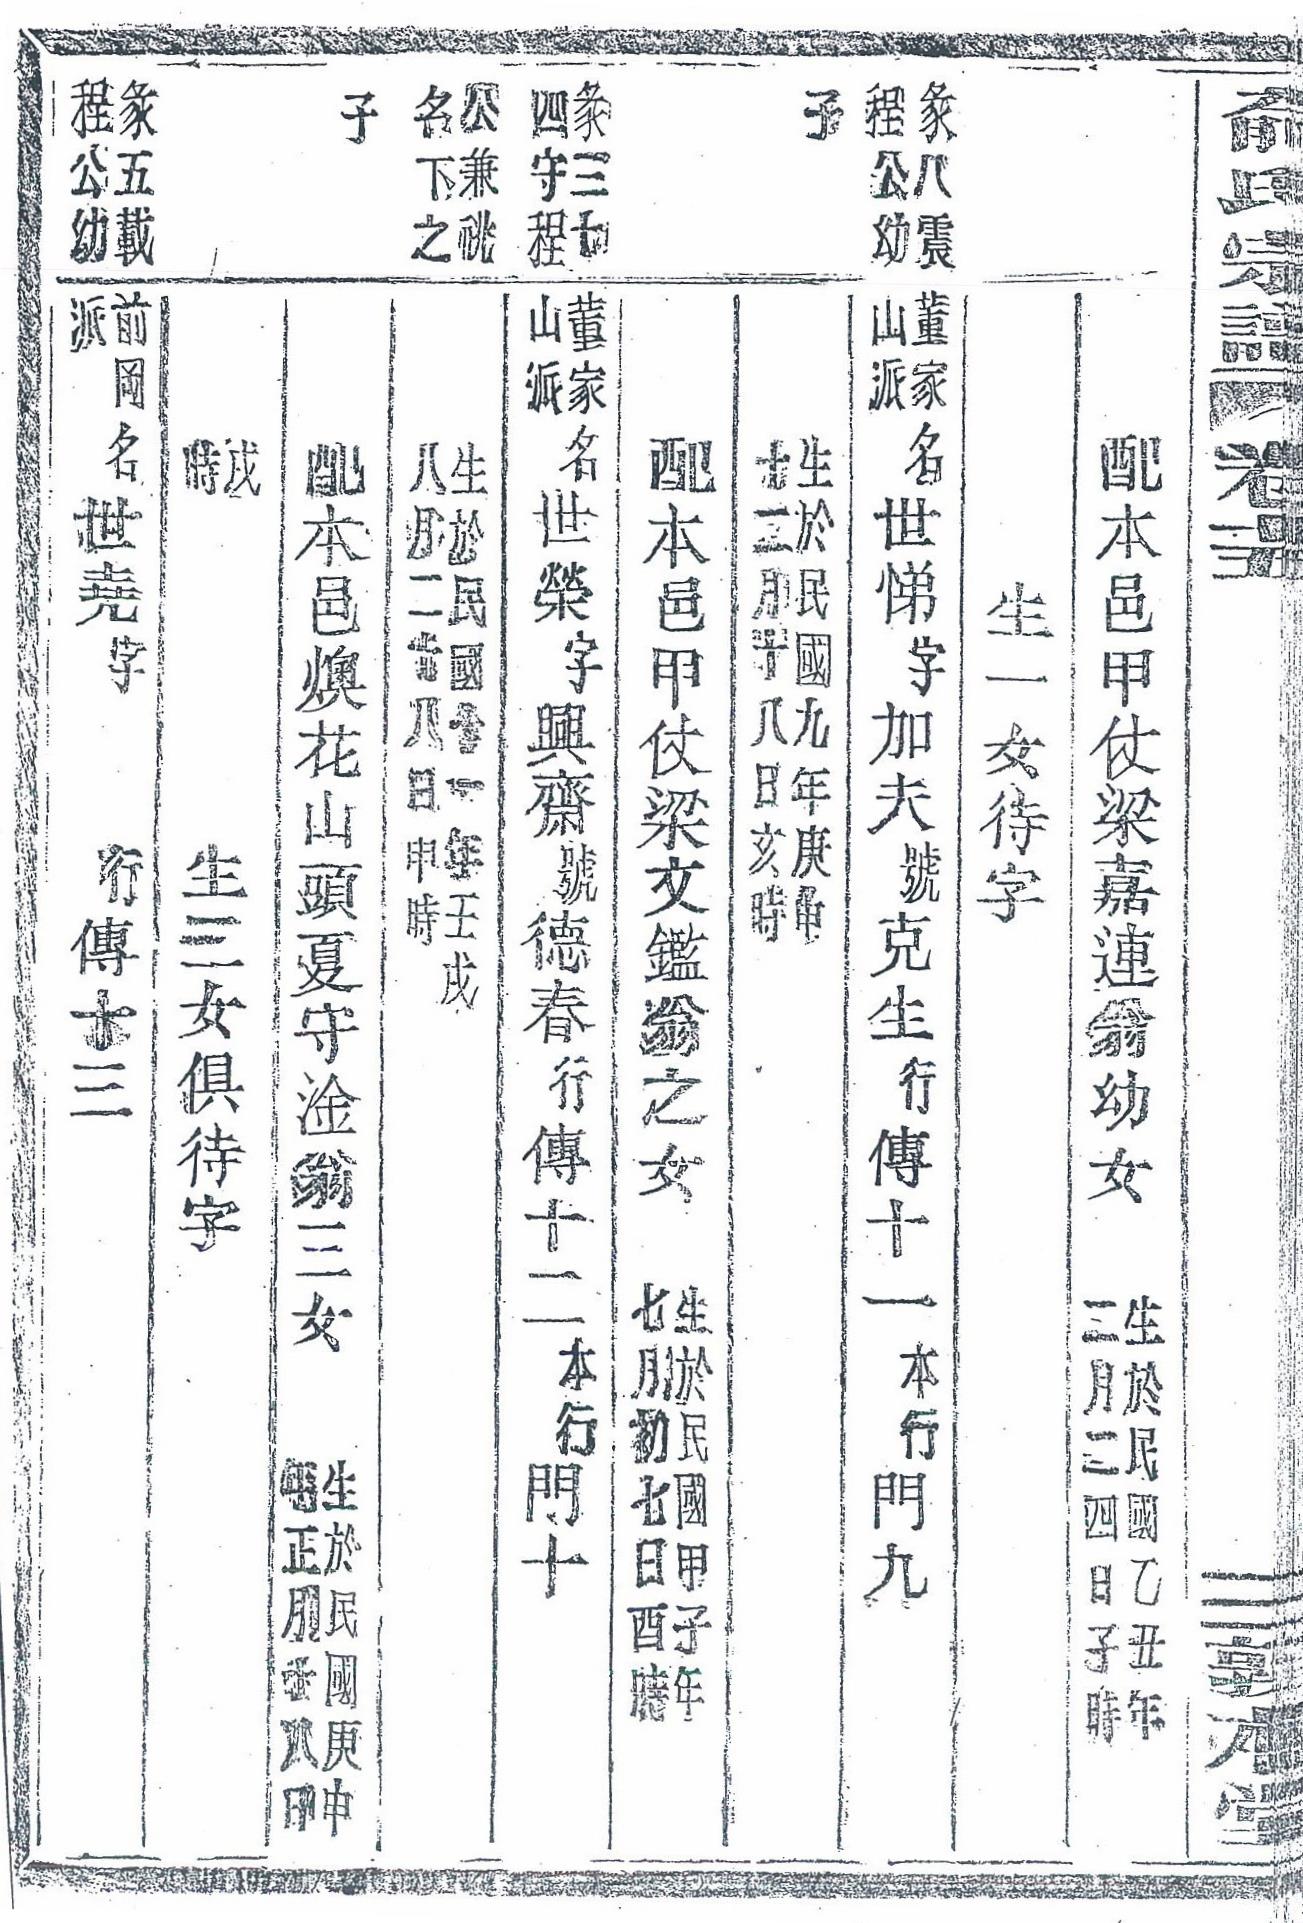 氏宗譜
卷
堂
配本邑甲仗梁嘉連翁幼女
生於民國乙丑年
三月二四日子時
生一女待字
彖八震
程公幼
子
董家
山派
名世悌字加夫號克生行傳十一本行門九
生於民國九年庚申
十二月十八日亥時
配本邑甲仗梁文鑑翁之女
生於民國甲子年
七月初七日酉時
彖三十
四守程
公兼祧
名下之
子
董家
山派
名世榮字興齋號德春行傳十二本行門十
生於民國十一年壬戌
八月二十八日申時
配本邑煥花山頭夏守淦翁三女
生於民國庚申
正月八日
戌
時
生三女俱待字
彖五載
程公幼
前岡
派
名世堯字
行傳十三